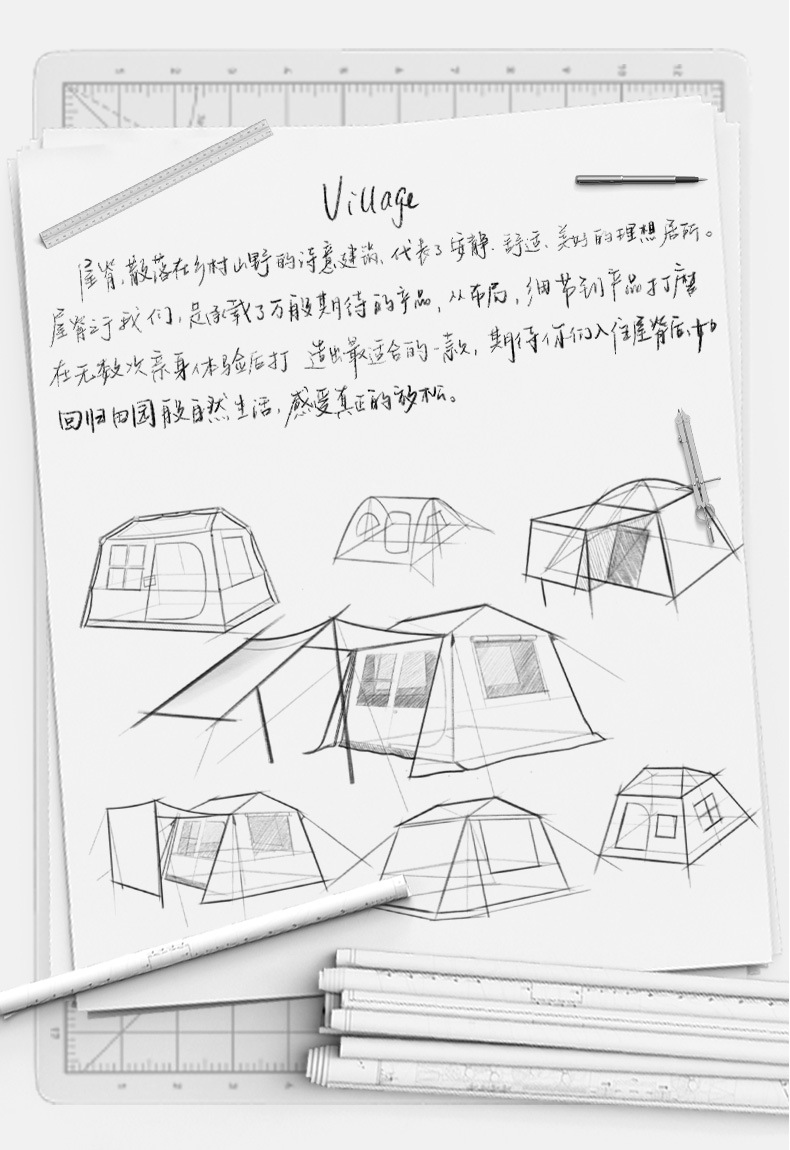 Village
屋脊,散落在乡村山野的诗意建筑,代表了安静、舒适、美好的理想居所。
屋脊之于我们,是承载了万般期待的产品,从布局,细节到产品打磨
在无数次亲身体验后打造出最适合的一款,期待你们入住屋脊后,如
回归田园般自然生活,感受真正的放松。